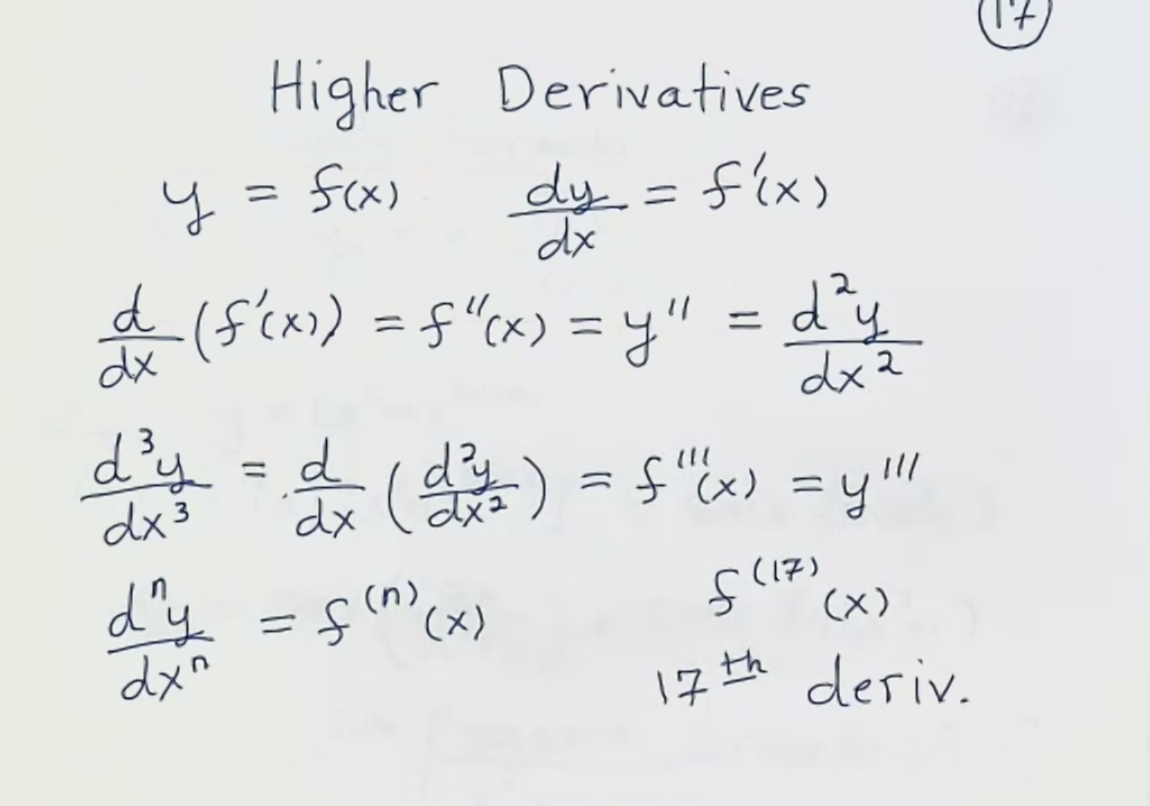 17
Higher Derivatives
y = f(x) dy/dx = f'(x)
d/dx (f'(x)) = f''(x) = y'' = d²y/dx²
d³y/dx³ = d/dx (d²y/dx²) = f'''(x) = y'''
dⁿy/dxⁿ = f⁽ⁿ⁾(x) f⁽¹⁷⁾(x)
17th deriv.